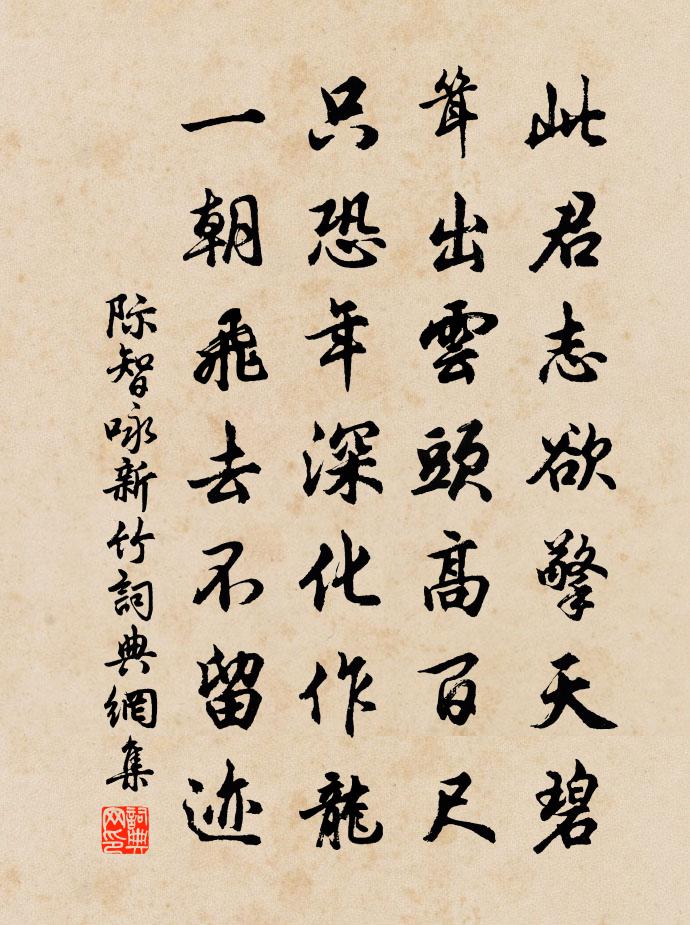 此君志欲擎天碧
耸出雲頭高百尺
只恐年深化作龍
一朝飛去不留迹
际智咏新竹詞典網集
詞典
网印